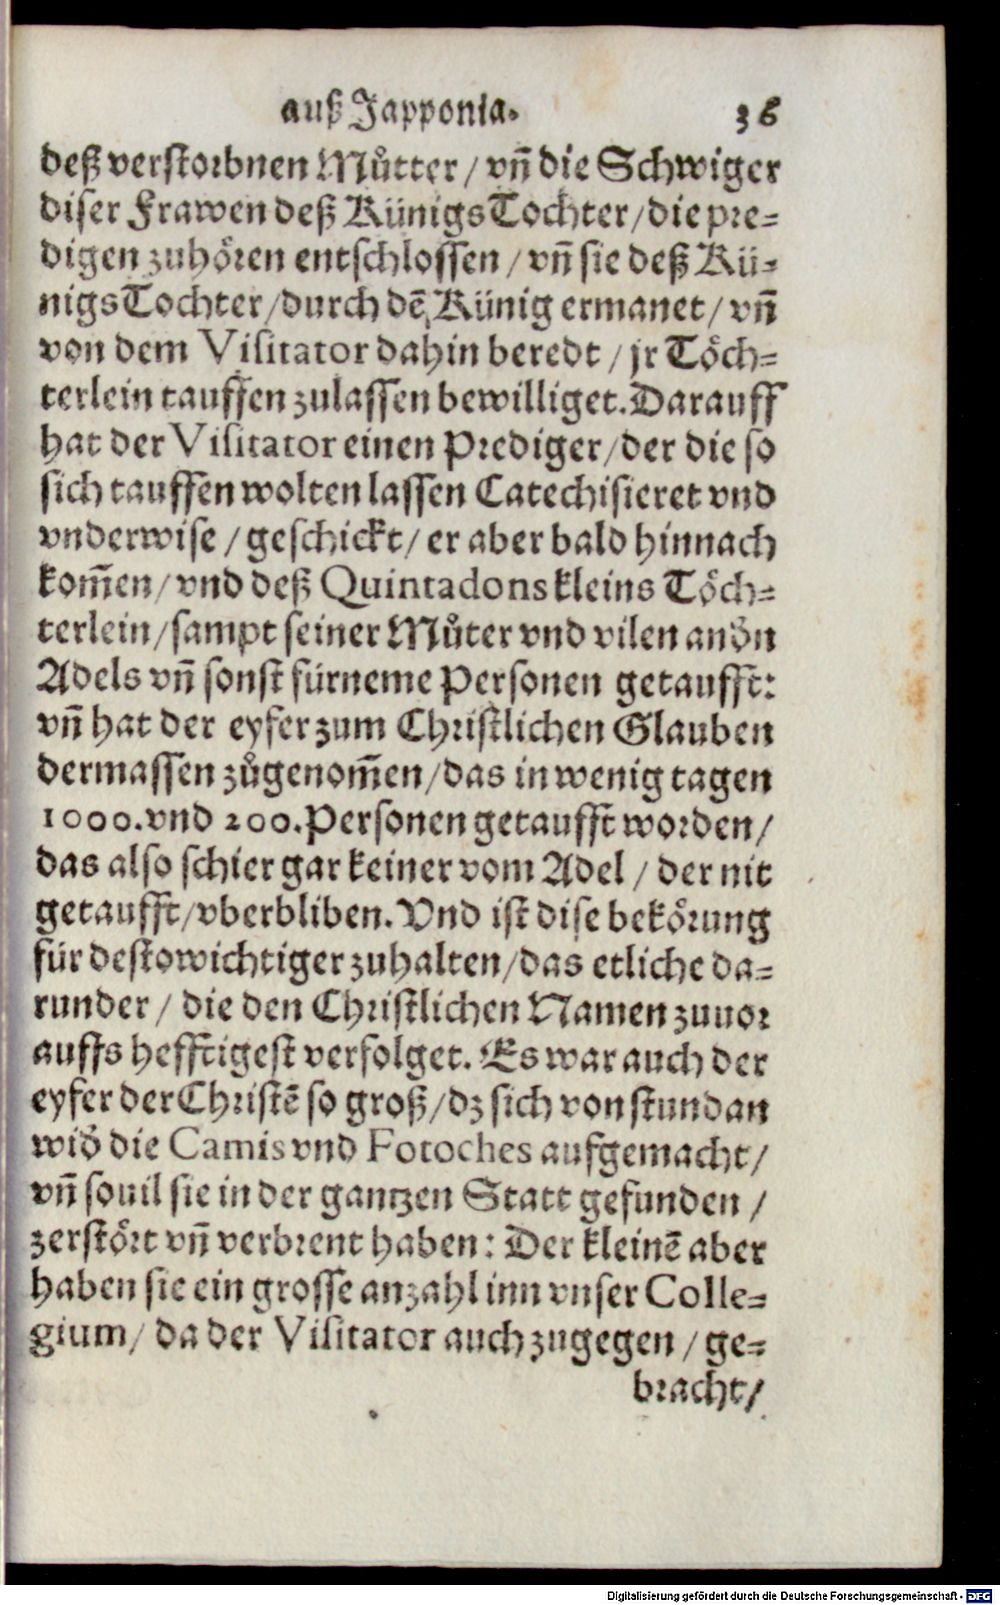 auß Japponia. 36
deß verstorbnen Můtter / vñ die Schwiger
diser Frawen deß Künigs Tochter / die pre-
digen zuhören entschlossen / vñ sie deß Kü-
nigs Tochter / durch dē Künig ermanet / vñ
von dem Visitator dahin beredt / jr Töch-
terlein tauffen zulassen bewilliget. Darauff
hat der Visitator einen Prediger / der die so
sich tauffen wolten lassen Catechisieret vnd
vnderwise / geschickt / er aber bald hinnach
kom̃en / vnd deß Quintadons kleins Töch-
terlein / sampt seiner Můter vnd vilen andn
Adels vñ sonst fürneme Personen getaufft:
vñ hat der eyfer zum Christlichen Glauben
dermassen zůgenom̃en / das in wenig tagen
1000. vnd 200. Personen getaufft worden /
das also schier gar keiner vom Adel / der nit
getaufft / vberbliben. Vnd ist dise bekörung
für desto wichtiger zuhalten / das etliche da-
runder / die den Christlichen Namen zuuor
auffs hefftigest verfolget. Es war auch der
eyfer der Christē so groß / dz sich von stund an
wid die Camis vnd Fotoches aufgemacht /
vñ souil sie in der gantzen Statt gefunden /
zerstört vñ verbrent haben: Der kleinē aber
haben sie ein grosse anzahl inn vnser Colle-
gium / da der Visitator auch zugegen / ge-
bracht /
Digitalisierung gefördert durch die Deutsche Forschungsgemeinschaft - DFG